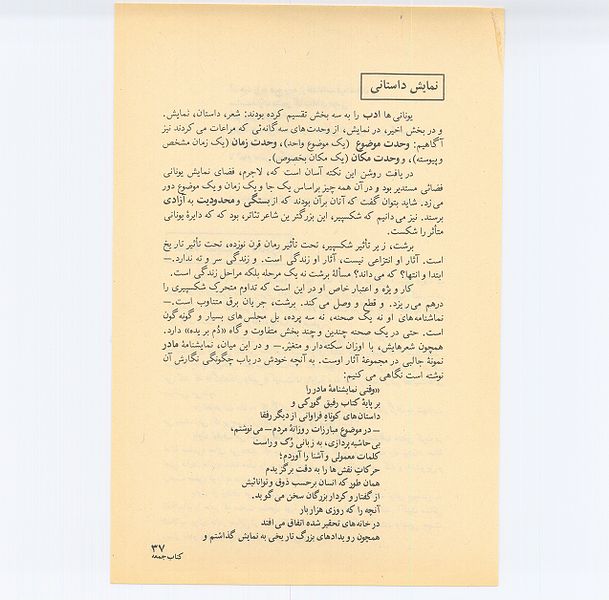 نمایش داستانی
یونانی ها ادب را به سه بخش تقسیم کرده بودند: شعر، داستان، نمایش.
و در بخش اخیر، در نمایش، از وحدت های سه گانه ئی که مراعات می کردند نیز
آگاهیم: وحدت موضوع (یک موضوع واحد)، وحدت زمان (یک زمان مشخص
و پیوسته)، و وحدت مکان (یک مکان بخصوص).
در یافت روشن این نکته آسان است که، لاجرم، فضای نمایش یونانی
فضائی مستدیر بود و در آن همه چیز براساس یک جا و یک زمان و یک موضوع دور
می زد. شاید بتوان گفت که آنان برآن بودند که از بستگی و محدودیت به آزادی
برسند. نیز می دانیم که شکسپیر، این بزرگترین شاعر تئاتر، بود که که دایرۀ یونانی
متأثر را شکست.
برشت، زیر تأثیر شکسپیر، تحت تأثیر رمان قرن نوزده، تحت تأثیر تاریخ
است. آثار او انتزاعی نیست، آثار او زندگی است. و زندگی سر و ته ندارد.—
ابتدا و انتها؟ که می داند؟ مسألۀ برشت نه یک مرحله بلکه مراحل زندگی است.
کار ویژه و اعتبار خاص او در این است که تداوم متحرک شکسپیری را
درهم می ریزد. و قطع و وصل می کند. برشت، جریان برق متناوب است.—
نماشنامه های او نه یک صحنه، نه سه پرده، بل مجلس های بسیار و گونه گون
است. حتی در یک صحنه چندین و چند بخش متفاوت و گاه «دُم بریده» دارد.
همچون شعرهایش، با اوزان سکته دار و متغیر.— و در این میان، نمایشنامۀ مادر
نمونۀ جالبی در مجموعۀ آثار اوست. به آنچه خودش درباب چگونگی نگارش آن
نوشته است نگاهی می کنیم:
«وقتی نمایشنامۀ مادر را
بر پایۀ کتاب رفیق گورکی و
داستان های کوتاهِ فراوانی از دیگر رفقا
— در موضوع مبارزات روزانۀ مردم— می نوشتم،
بی حاشیه پردازی، به زبانی رُک و راست
کلمات معمولی و آشنا را آوردم؛
حرکاتِ نقش ها را به دقت برگزیدم
همان طور که انسان برحسب ذوق و توانائیش
از گفتار و کردار بزرگان سخن می گوید.
آنچه را که روزی هزار بار
در خانه های تحقیر شده اتفاق می افتد
همچون رویدادهای بزرگ تاریخی به نمایش گذاشتم و
۳۷
کتاب جمعه